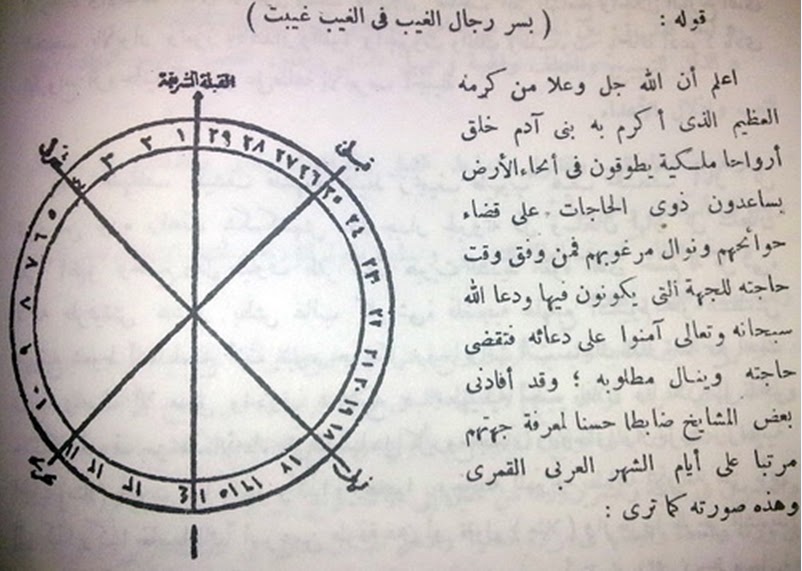 قوله : ( بسر رجال الغيب فى الغيب غيبت )
اعلم أن الله جل وعلا من كرمه
العظيم الذى أكرم به بنى آدم خلق
أرواحا ملكية يطوفون فى أنحاء الأرض
يساعدون ذوى الحاجات على قضاء
حوائجهم ونوال مرغوبهم فمن وفق وقت
حاجته للجهة التى يكونون فيها ودعا الله
سبحانه وتعالى آمنوا على دعائه فتقضى
حاجته وينال مطلوبه ؛ وقد أفادنى
بعض المشايخ ضابطا حسنا لمعرفة جهتهم
مرتبا على أيام الشهر العربى القمرى
وهذه صورته كما ترى :
القبلة الشريفة
١ ٢ ٣
٥ ٦ ٧ ٨ ٩ ١٠
١١ ١٢ ١٣
١٥ ١٦
١٨ ١٩ ٢٠ ٢١ ٢٢ ٢٣ ٢٤ ٢٥
٢٦ ٢٧ ٢٨ ٢٩